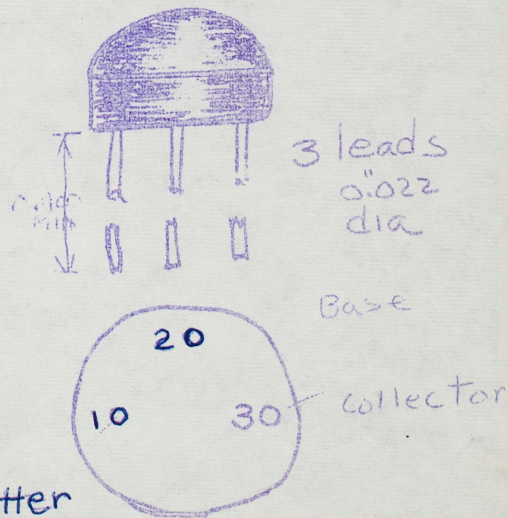 3 leads
0".022
dia
Base
20
10
30
collector
tter